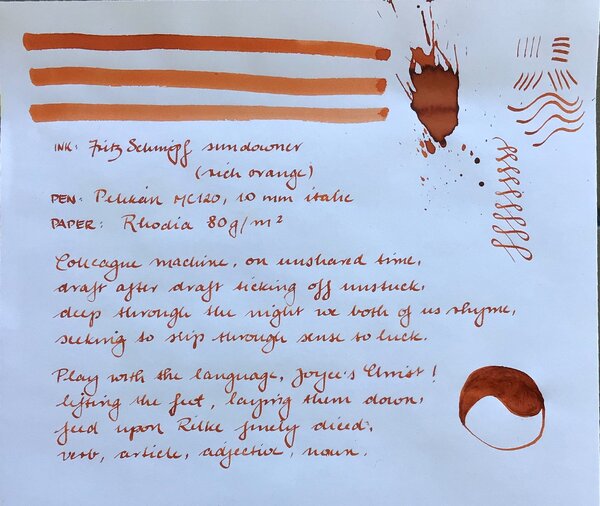 INK: Fritz Schimpf sundowner
(rich orange)
PEN: Pelikan MC120, 10 mm italic
PAPER: Rhodia 80g/m²
Colleague machine, on unshared time,
draft after draft ticking off unstuck,
deep through the night we both of us rhyme,
seeking to slip through sense to luck.
Play with the language, Joyce's Christ!
lifting the feet, laying them down,
feed upon Rilke finely diced,
verb, article, adjective, noun.